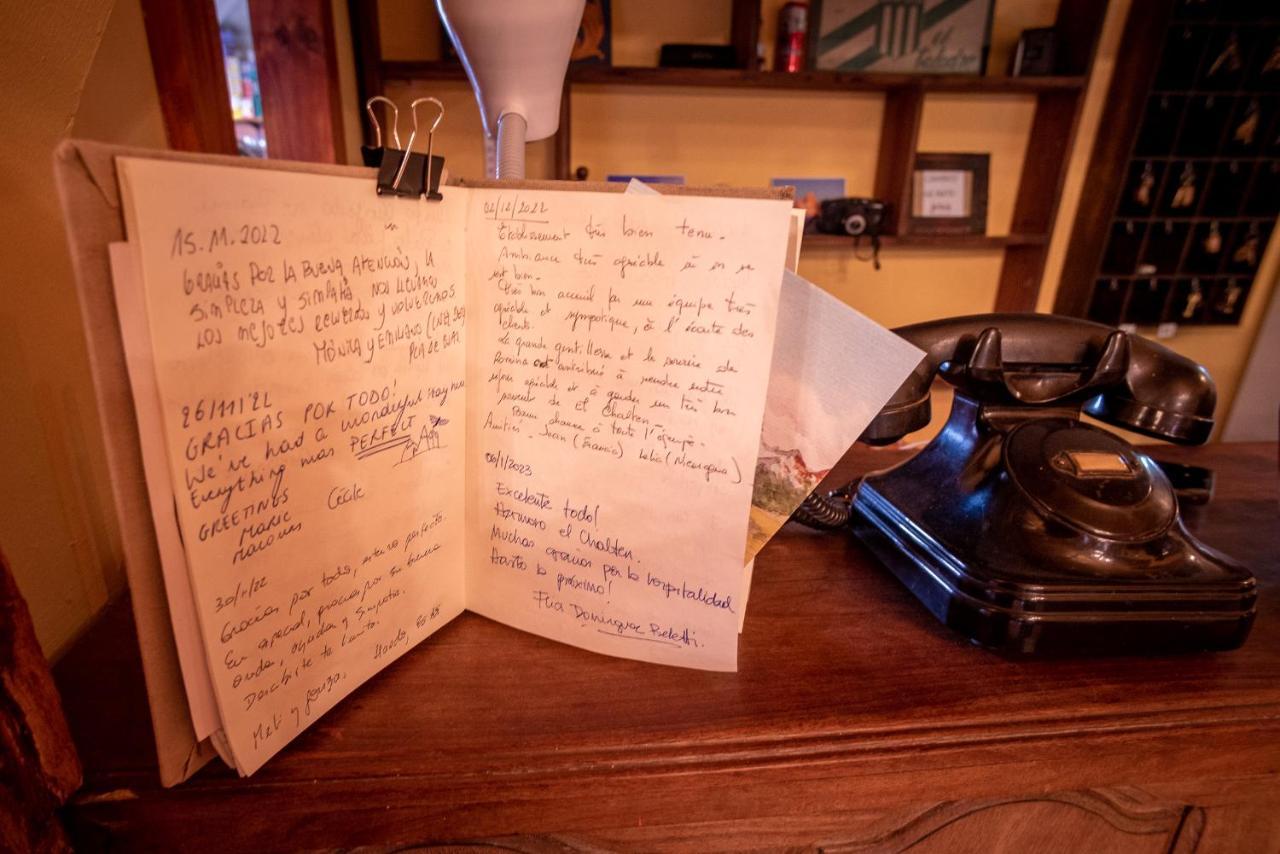 15.11.2022
GRACIAS POR LA BUENA ATENCIÓN, LA
SIMPLEZA Y SIMPATÍA, NOS LLEVAMOS
LOS MEJORES RECUERDOS Y VOLVEREMOS
MÓNICA Y EMILIANO
26/11/22
GRACIAS POR TODO!
We've had a wonderful stay here
Everything was PERFECT
GREETINGS
MARIE Cécile
30/11/22
Gracias por todo, estuvo perfecto.
En especial, gracias por su buena
onda, ayuda y simpatía.
Meli y Gonza.
02/12/2022
Etablissement très bien tenu.
Ambiance très agréable où on se
sent bien.
Très bon accueil par une équipe très
agréable et sympatique, à l'écoute des
clients.
La grande gentillesse et le sourire de
Romina ont contribué à rendre notre
séjour agréable et à garder un très bon
souvenir de el Chalten.
Bonne chance à toute l'équipe.
Amitiés. Jean (Francia) (Nicaragua)
06/1/2023
Excelente todo!
Hermoso el Chalten.
Muchas gracias por la hospitalidad
Hasta la próxima!
Flia Dominguez